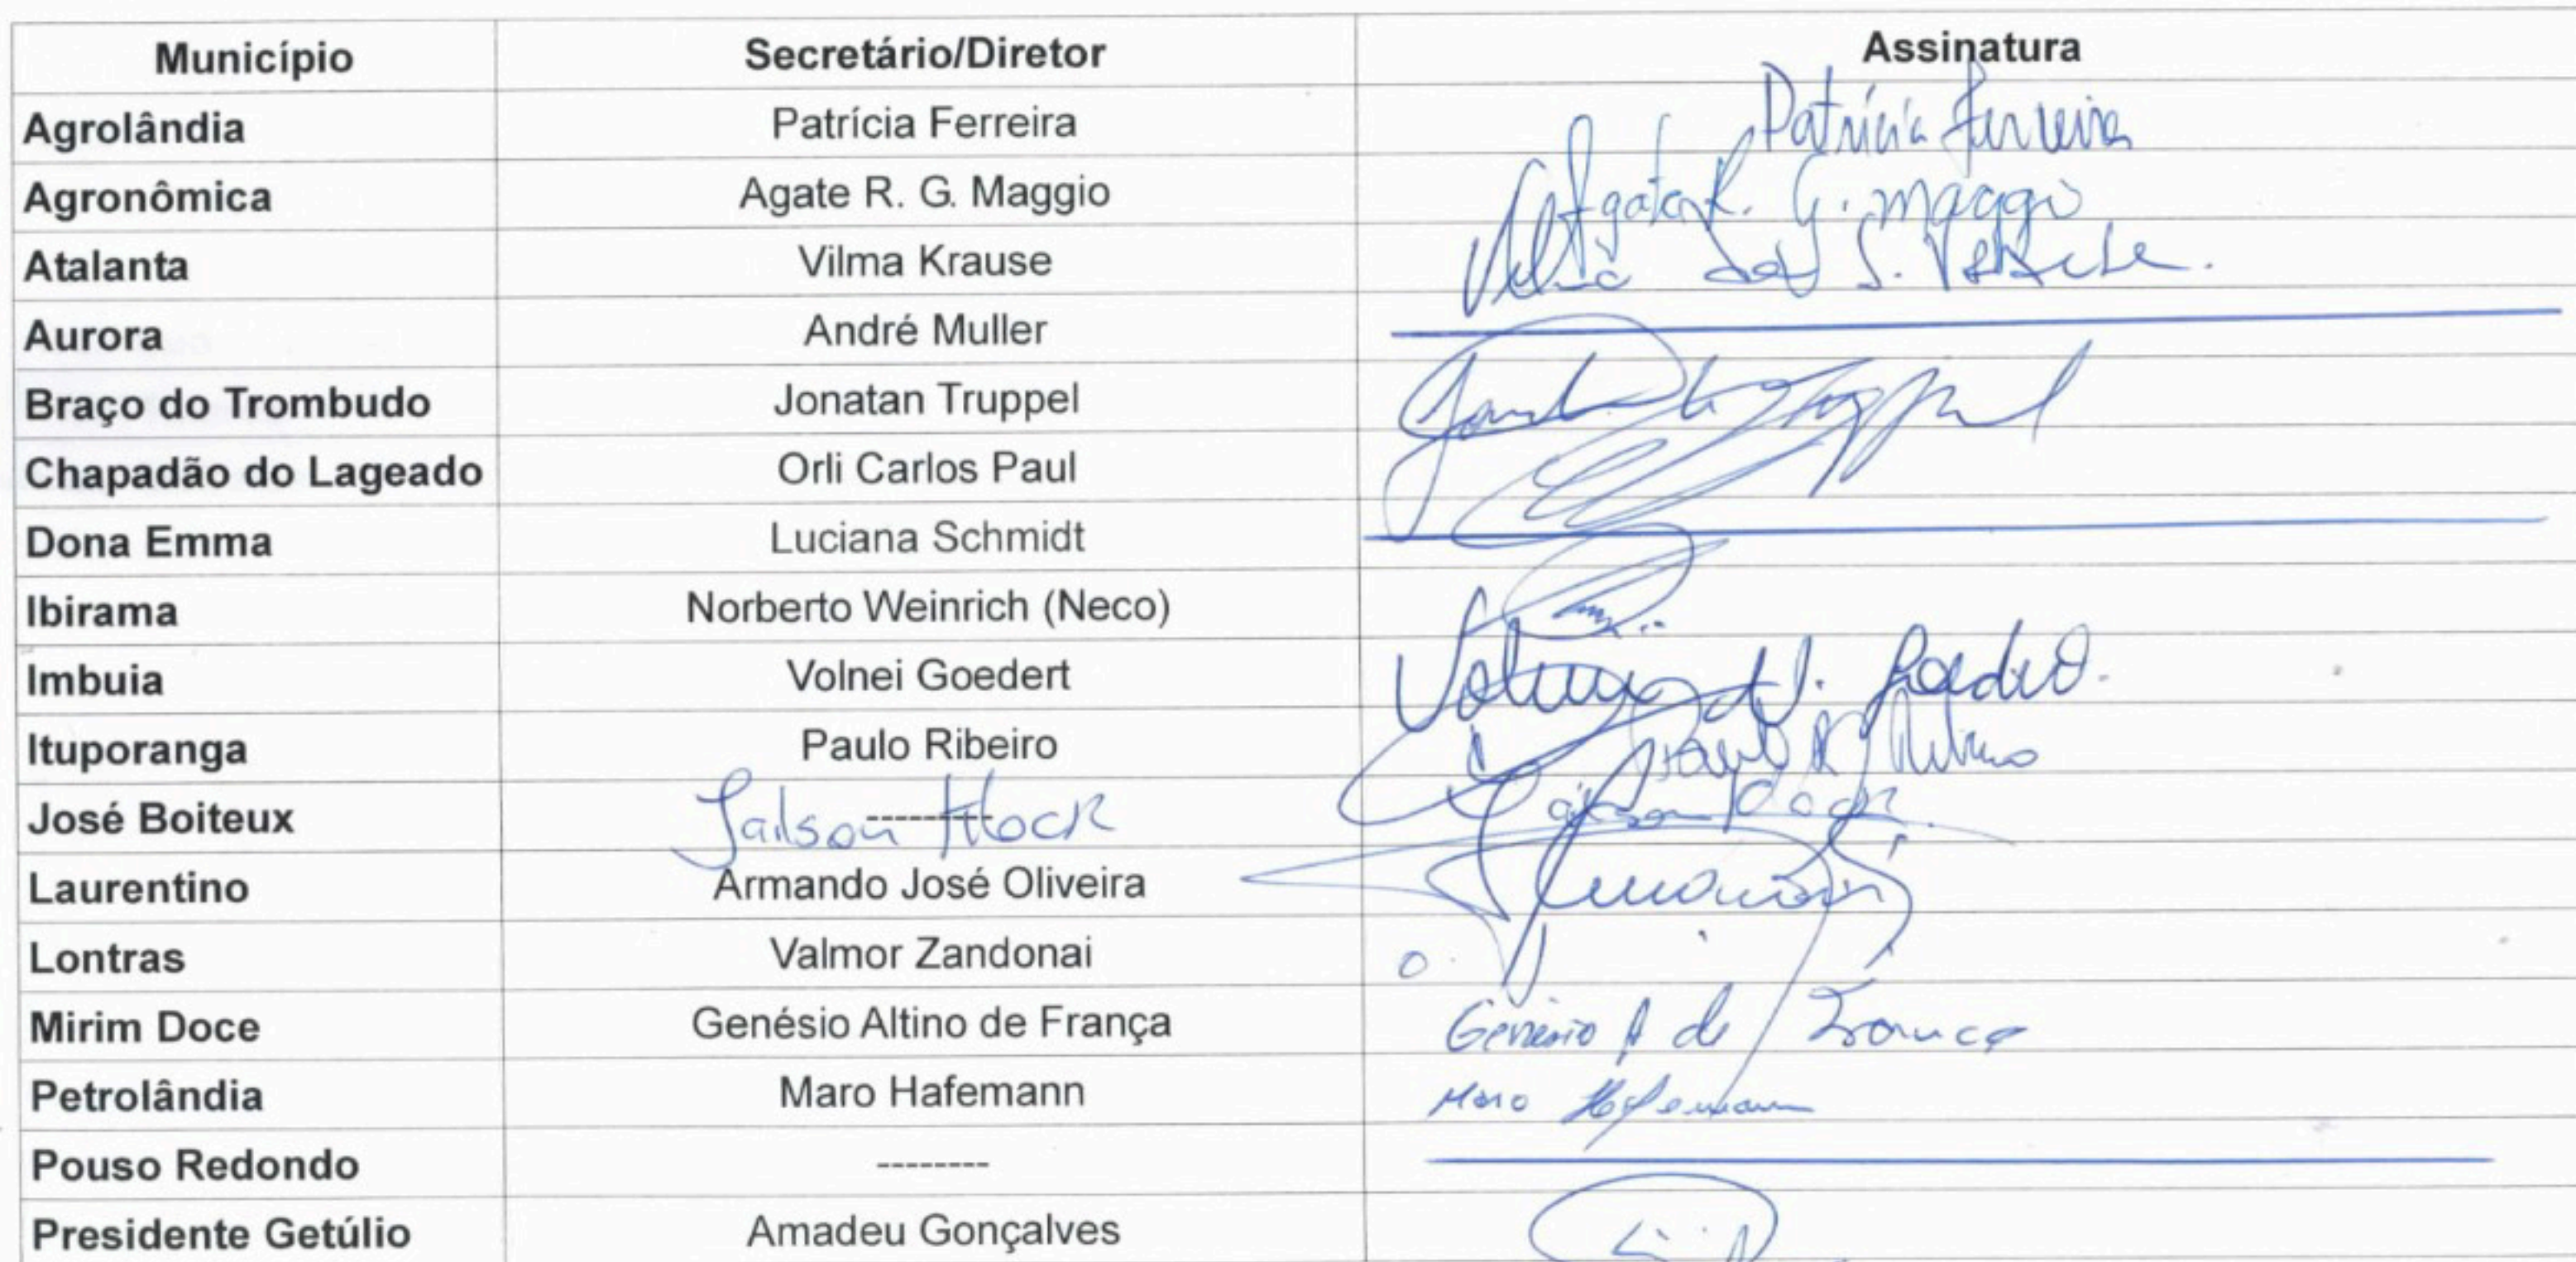 Município Secretário/Diretor Assinatura
Agrolândia Patrícia Ferreira Patrícia Ferreira
Agronômica Agate R. G. Maggio Agata R. G. Maggio
Atalanta Vilma Krause
Aurora André Muller
Braço do Trombudo Jonatan Truppel
Chapadão do Lageado Orli Carlos Paul
Dona Emma Luciana Schmidt
Ibirama Norberto Weinrich (Neco)
Imbuia Volnei Goedert
Ituporanga Paulo Ribeiro
José Boiteux -------- Jailson Hock
Laurentino Armando José Oliveira
Lontras Valmor Zandonai
Mirim Doce Genésio Altino de França Genésio A de França
Petrolândia Maro Hafemann Maro Hafemann
Pouso Redondo --------
Presidente Getúlio Amadeu Gonçalves